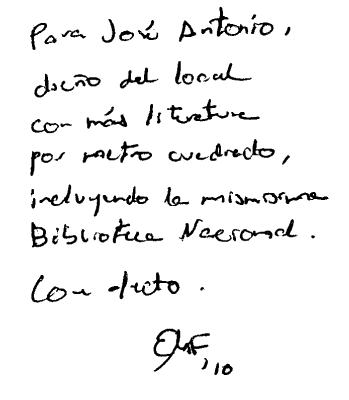 Para José Antonio,
dueño del local
con más literatura
por metro cuadrado,
incluyendo la mismísima
Biblioteca Nacional.
Con afecto.
,10